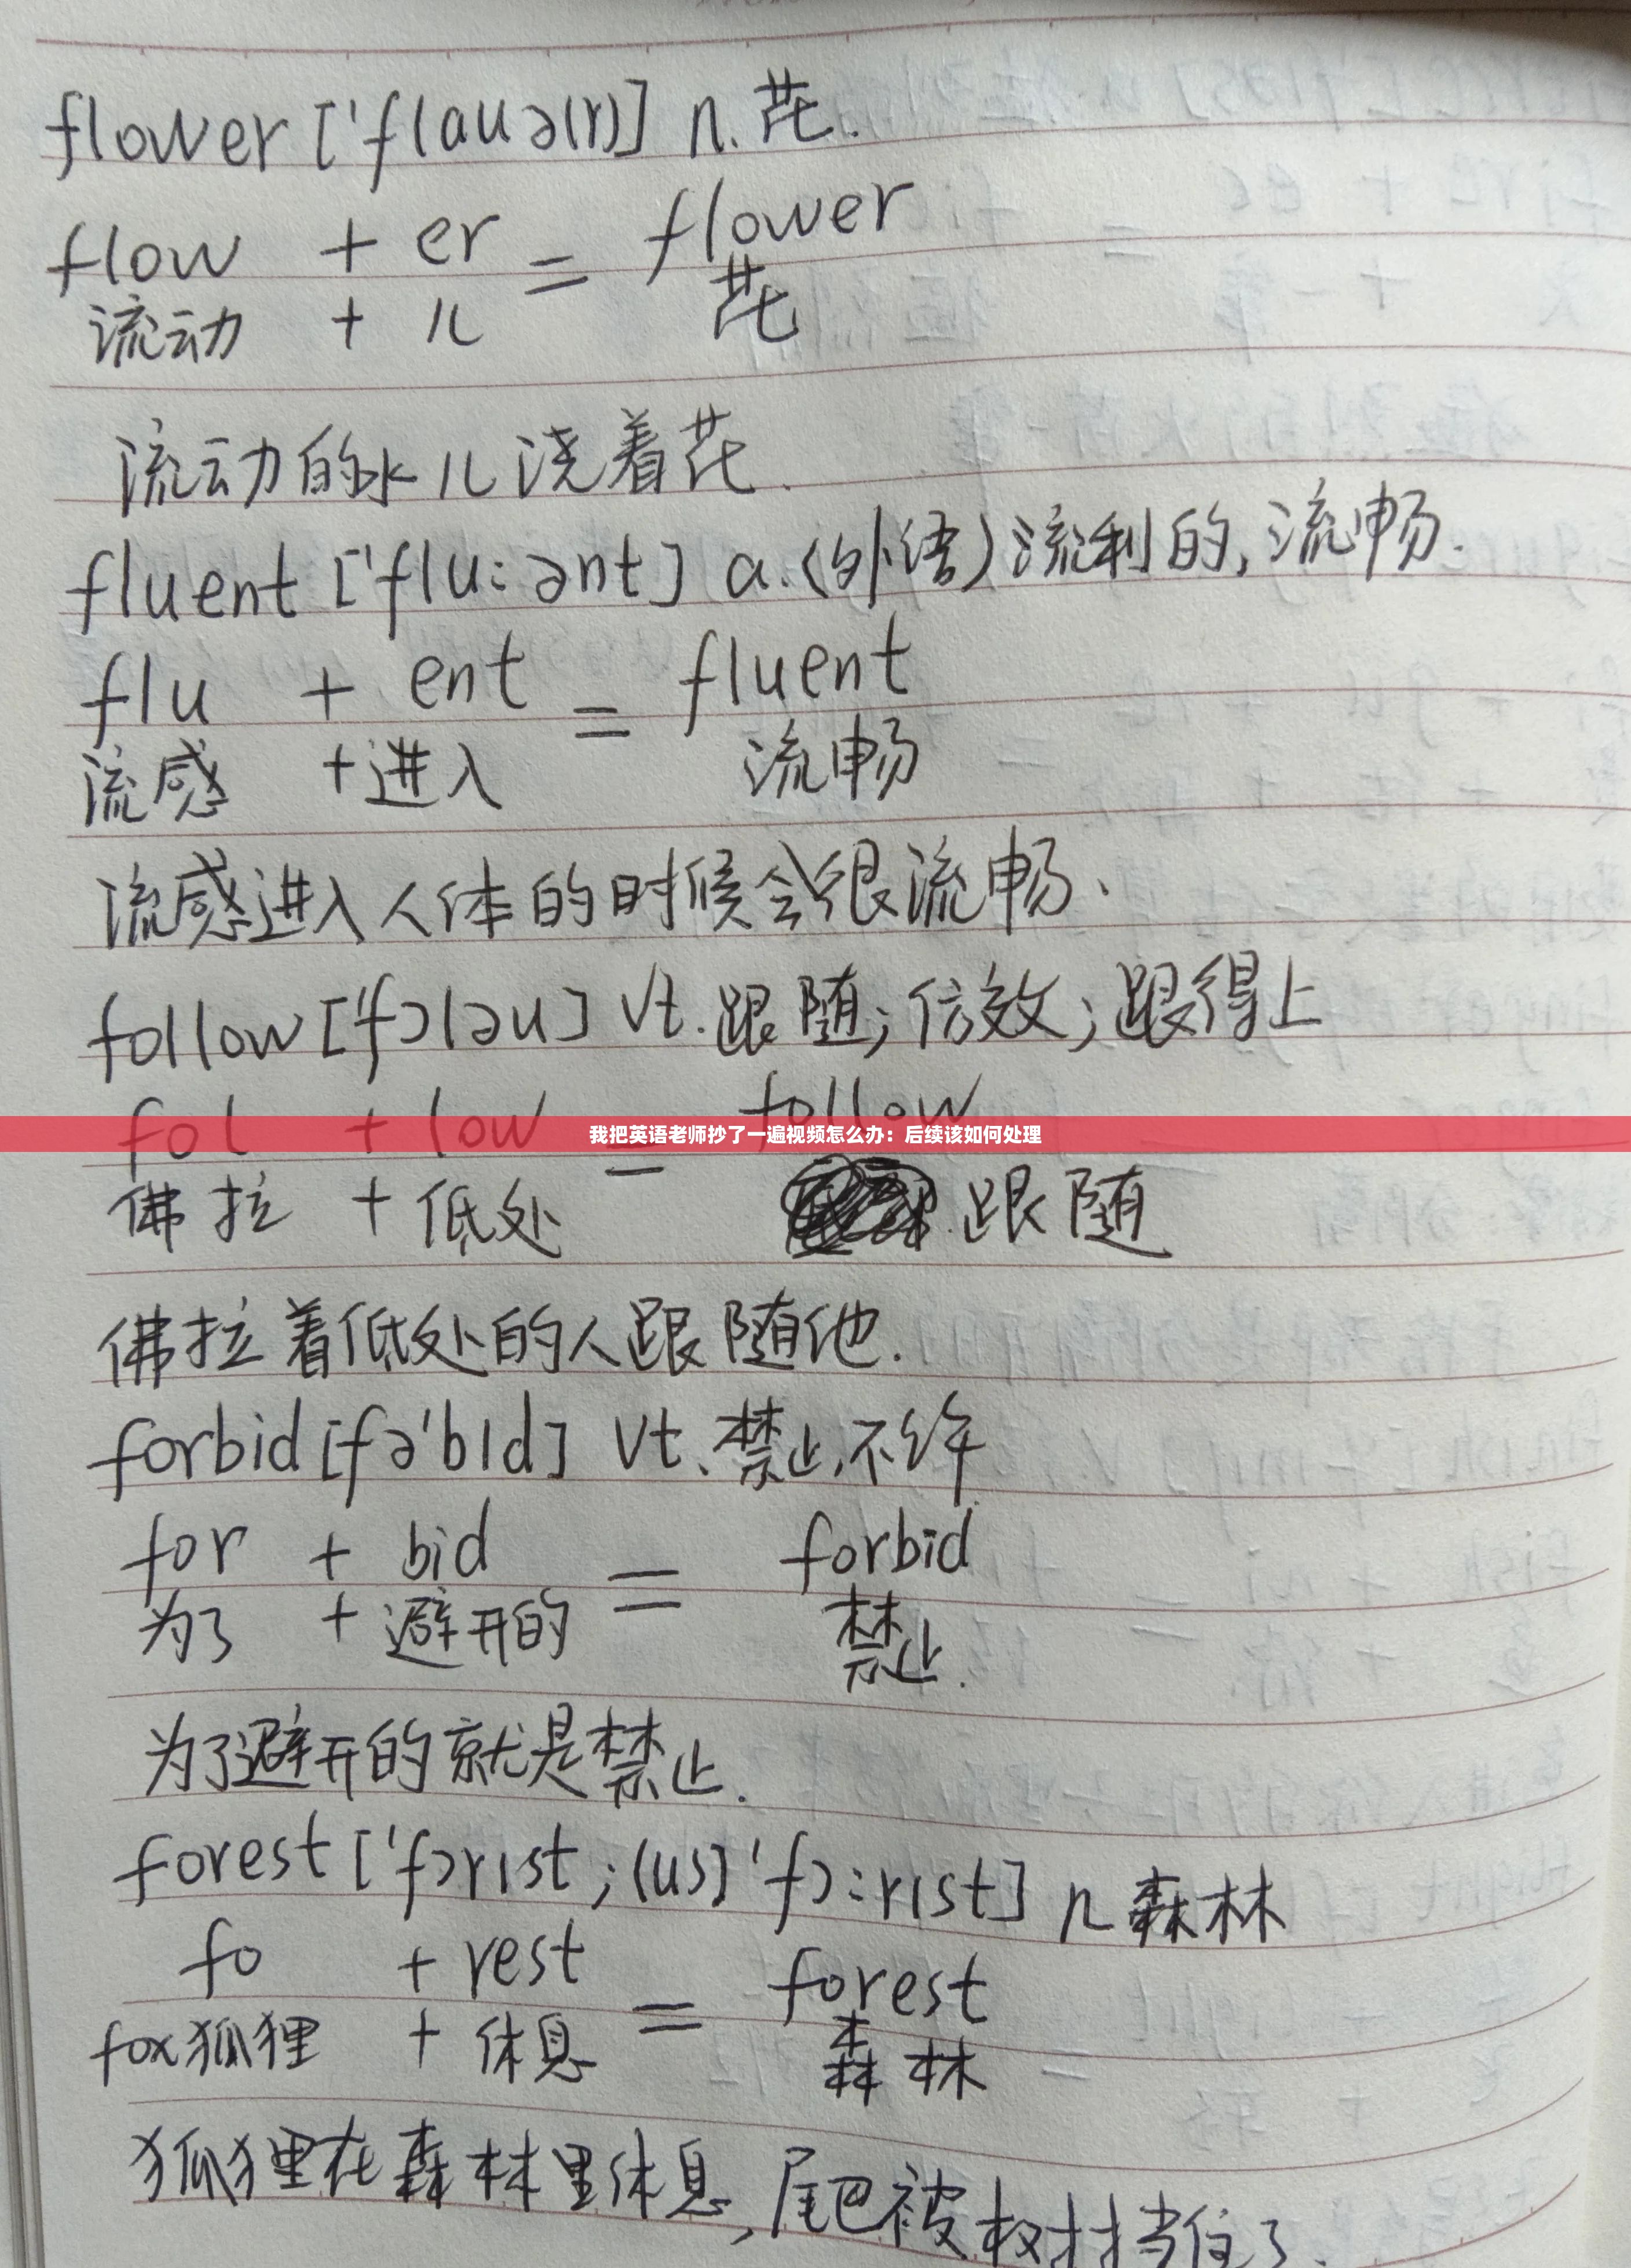 flower ['flauə(r)] n. 花.
flow + er = flower
流动 + 儿 花
流动的水儿浇着花.
fluent ['flu:ənt] a.(外语)流利的,流畅.
flu + ent = fluent
流感 +进入 流畅
流感进入人体的时候会很流畅.
follow ['fɔləu] vt.跟随;仿效;跟得上
fol + low = follow
我把英语老师抄了一遍视频怎么办：后续该如何处理
佛拉 + 低处 跟随
佛拉着低处的人跟随他.
forbid [fə'bɪd] vt.禁止,不许
for + bid = forbid
为了 + 避开的 禁止.
为了避开的就是禁止.
forest ['fɔrɪst;(us)'fɔ:rɪst] n 森林
fo + rest = forest
fox狐狸 + 休息 森林
狐狸在森林里休息,尾巴被树挡住了.